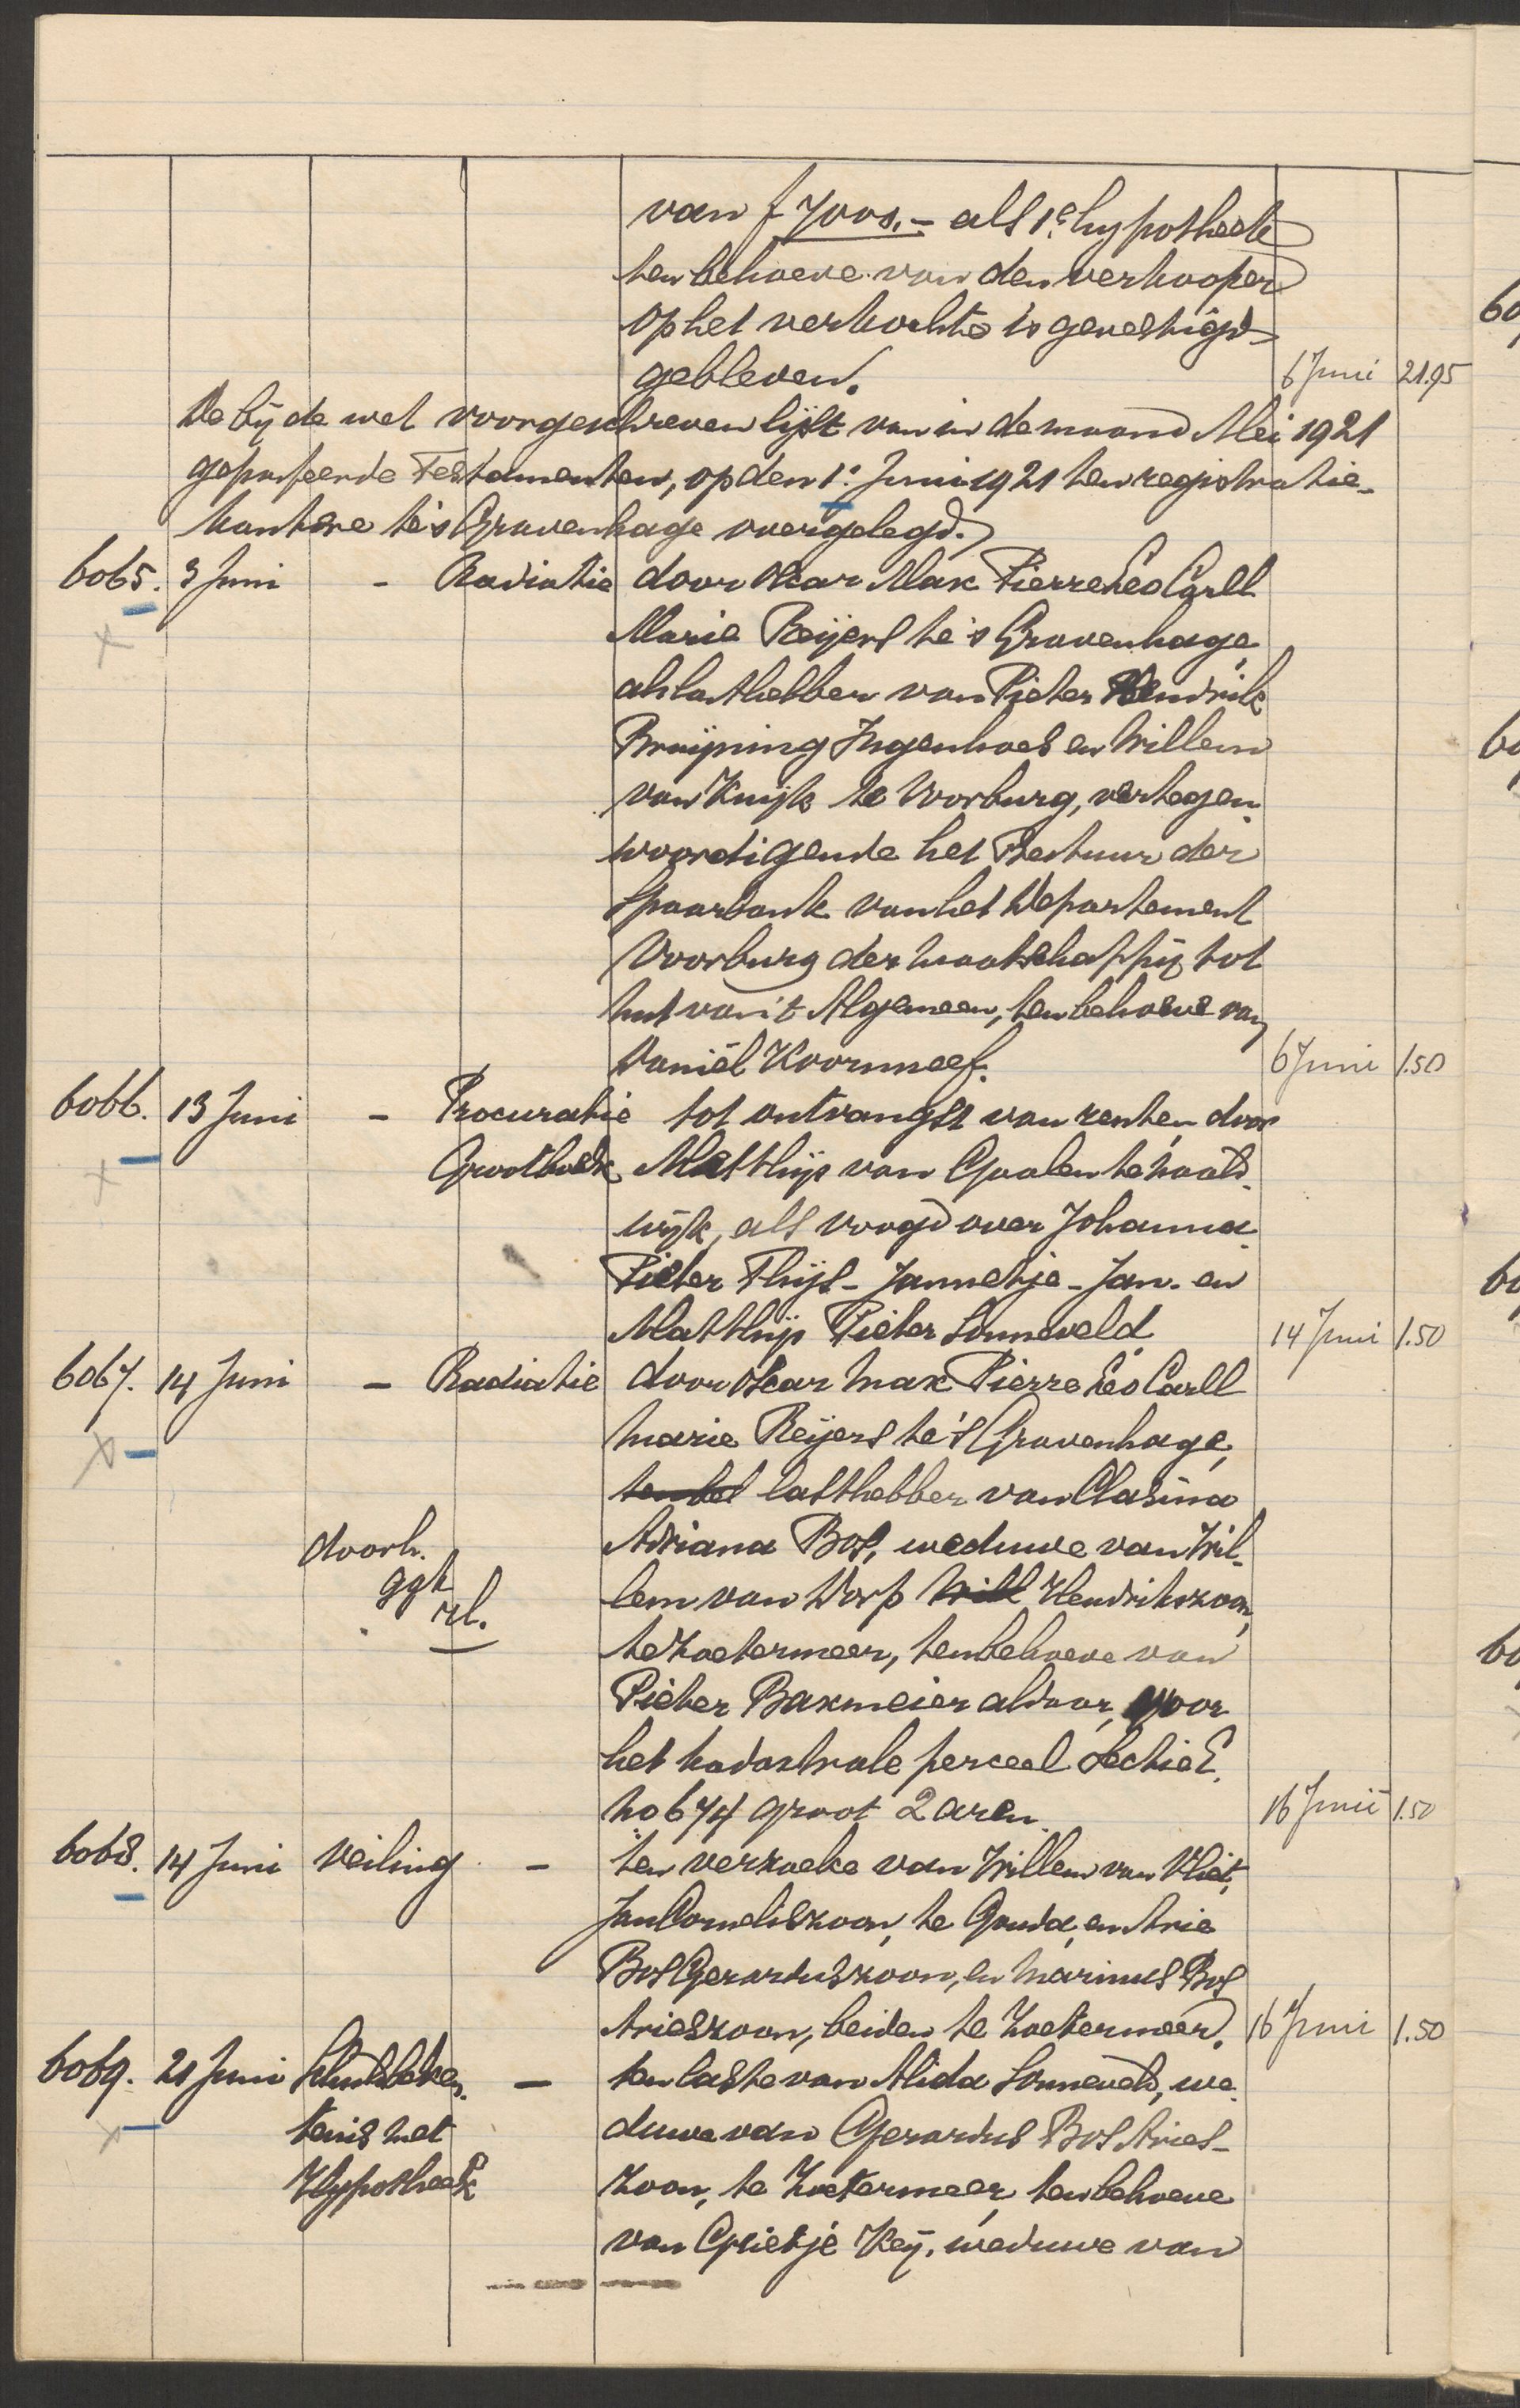 van f 7000.- als 1e hypotheek
ten behoeve van den verkooper
op het verkochte is gevestigd
gebleven. 6 Juni 21.95
De bij de wet voorgeschreven lijst van in de maand Mei 1921
gepasseerde Testamenten, op den 1e Juni 1921 ten registratie-
kantore te 's Gravenhage overgelegd.
6065. 3 Juni - Radiatie door Oscar Max Pierre Leo Carll
Marie Reijers te 's Gravenhage,
als lasthebber van Pieter Hendrik
Bruijning Ingenhoes en Willem
van Kuijk te Voorburg, vertegen-
woordigende het Bestuur der
Spaarbank van het Departement
Voorburg der Maatschappij tot
Nut van 't Algemeen, ten behoeve van
Daniël Koornneef. 6 Juni 1.50
6066. 13 Juni - Procuratie tot ontvangst van renten, door
Grootboek Matthijs van Gaalen te Naald-
wijk, als voogd over Johanna-
Pieter Thijs- Jannetje- Jan- en
Matthijs Pieter Sonneveld. 14 Juni 1.50
6067. 14 Juni - Radiatie door Oscar Max Pierre Leo Carll
Marie Reijers te 's Gravenhage,
ten beh lasthebber van Clasina
doorh. Adriana Bos, weduwe van Wil-
ggk lem van Dorp Will Hendrikszoon,
rl. te Zoetermeer, ten behoeve van
Pieter Baxmeier aldaar, voor
het kadastrale perceel Sectie E.
No 674 groot 2 aren. 16 Juni 1.50
6068. 14 Juni Veiling - ten verzoeke van Willem van Vliet,
Jan Corneliszoon, te Gouda, en Arie
Bos Gerarduszoon, en Marinus Bos
Arieszoon, beiden te Zoetermeer. 16 Juni 1.50
6069. 21 Juni Schuldbeken- - ten laste van Alida Sonneveld, we-
tenis met duwe van Gerardus Bos Aries-
Hypotheek zoon, te Zoetermeer, ten behoeve
van Grietje Keij, weduwe van